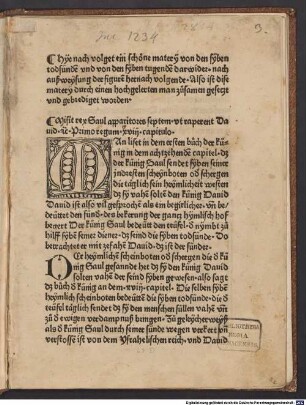 Inc 1234
9.
Hye nach volget ein schöne matery von den syben
todsünde vnd von den syben tugende darwider· nach
außweysung der figurē hernach volgende· Also ist dise
matery durch einen hochgelerten man züsamen gesetzt
vnd geprediget worden·
Misit rex Saul apparitores septem· vt raperent Da
uid·ꝛc· Primo regum·xviij· capitulo·
MAn list in dem ersten büch der kü
nig in dem achtzehendē capitel· dz
der künig Saul sendet syben seiner
fürsten scheynboten oder schergen
die täglich sein heymlicheit westen
dz sy vahē soltē den künig Dauid
Dauid ist also vil gesprochē als ein begirlicher· vn̄ be
deüttet den sünder· des bekerung der gantz hymlisch hof
begert Der künig Saul bedeütt den teüfel· der nymbt zü
hilff sybē seiner diener· dz seind die syben todsünde· Do
betrachtet er wie er fahe Dauid· dz ist der sünder·
DEr heymlich scheinboten oder schergen die der kü
nig Saul gesannde het dz sy den künig Dauid
solten vahē der seind syben gewesen· also sagt
dz büch der künig an dem·xviij· capitel· Die selben sybē
heymlich scheinboten bedeüttē die syben todsünde· die der
teüfel täglich sendet dz sy den menschen süllen vahē vn̄
zü der ewigen verdampnuß bringen·
als der künig Saul durch seiner sünde wegen
verstossē ist von dem Israhelischen reich· vnd Dauid
BIBLIOTHECA
REGIA
MONACENSIS